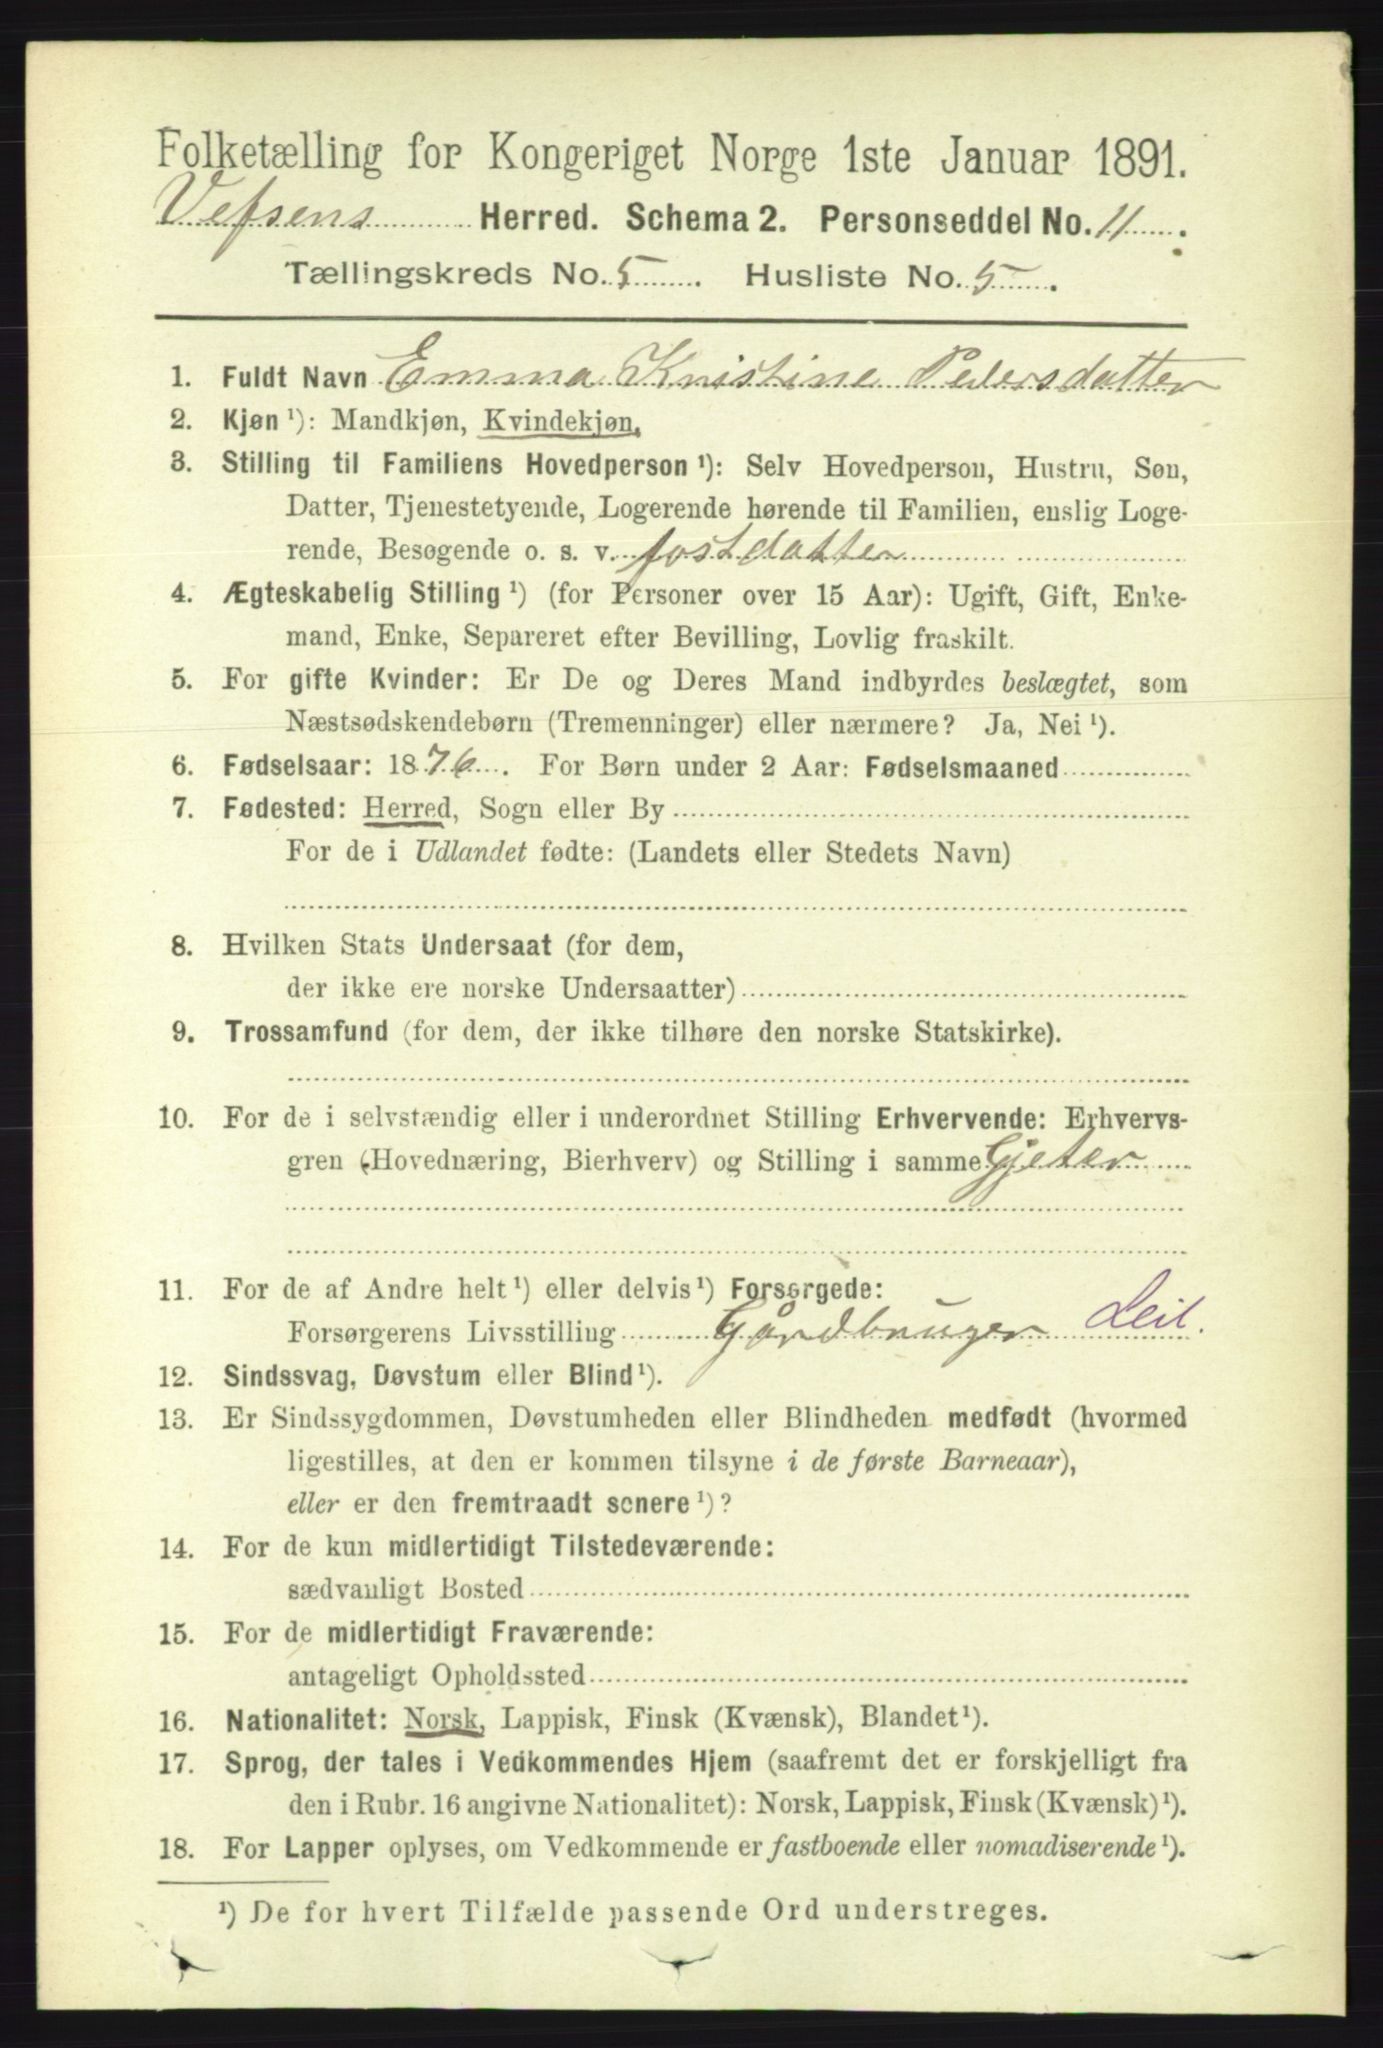 Folketælling for Kongeriget Norge 1ste Januar 1891.
Vefsens Herred. Schema 2. Personseddel No. 11.
Tællingskreds No. 5. Husliste No. 5.
1. Fuldt Navn Emma Kristine Pedersdatter
2. Kjøn ¹): Mandkjøn, Kvindekjøn.
3. Stilling til Familiens Hovedperson ¹): Selv Hovedperson, Hustru, Søn,
Datter, Tjenestetyende, Logerende hørende til Familien, enslig Loge-
rende, Besøgende o. s. v. fostdatter
4. Ægteskabelig Stilling ¹) (for Personer over 15 Aar): Ugift, Gift, Enke-
mand, Enke, Separeret efter Bevilling, Lovlig fraskilt.
5. For gifte Kvinder: Er De og Deres Mand indbyrdes beslægtet, som
Næstsødskendebørn (Tremenninger) eller nærmere? Ja, Nei ¹).
6. Fødselsaar: 1876. For Børn under 2 Aar: Fødselsmaaned
7. Fødested: Herred, Sogn eller By
For de i Udlandet fødte: (Landets eller Stedets Navn)
8. Hvilken Stats Undersaat (for dem,
der ikke ere norske Undersaatter)
9. Trossamfund (for dem, der ikke tilhøre den norske Statskirke).
10. For de i selvstændig eller i underordnet Stilling Erhvervende: Erhvervs-
gren (Hovednæring, Bierhverv) og Stilling i samme Gjeter
11. For de af Andre helt ¹) eller delvis ¹) Forsørgede:
Forsørgerens Livsstilling Gårdbruger Leil.
12. Sindssvag, Døvstum eller Blind ¹).
13. Er Sindssygdommen, Døvstumheden eller Blindheden medfødt (hvormed
ligestilles, at den er kommen tilsyne i de første Barneaar),
eller er den fremtraadt senere ¹)?
14. For de kun midlertidigt Tilstedeværende:
sædvanligt Bosted
15. For de midlertidigt Fraværende:
antageligt Opholdssted
16. Nationalitet: Norsk, Lappisk, Finsk (Kvænsk), Blandet ¹).
17. Sprog, der tales i Vedkommendes Hjem (saafremt det er forskjelligt fra
den i Rubr. 16 angivne Nationalitet): Norsk, Lappisk, Finsk (Kvænsk) ¹).
18. For Lapper oplyses, om Vedkommende er fastboende eller nomadiserende ¹).
¹) De for hvert Tilfælde passende Ord understreges.